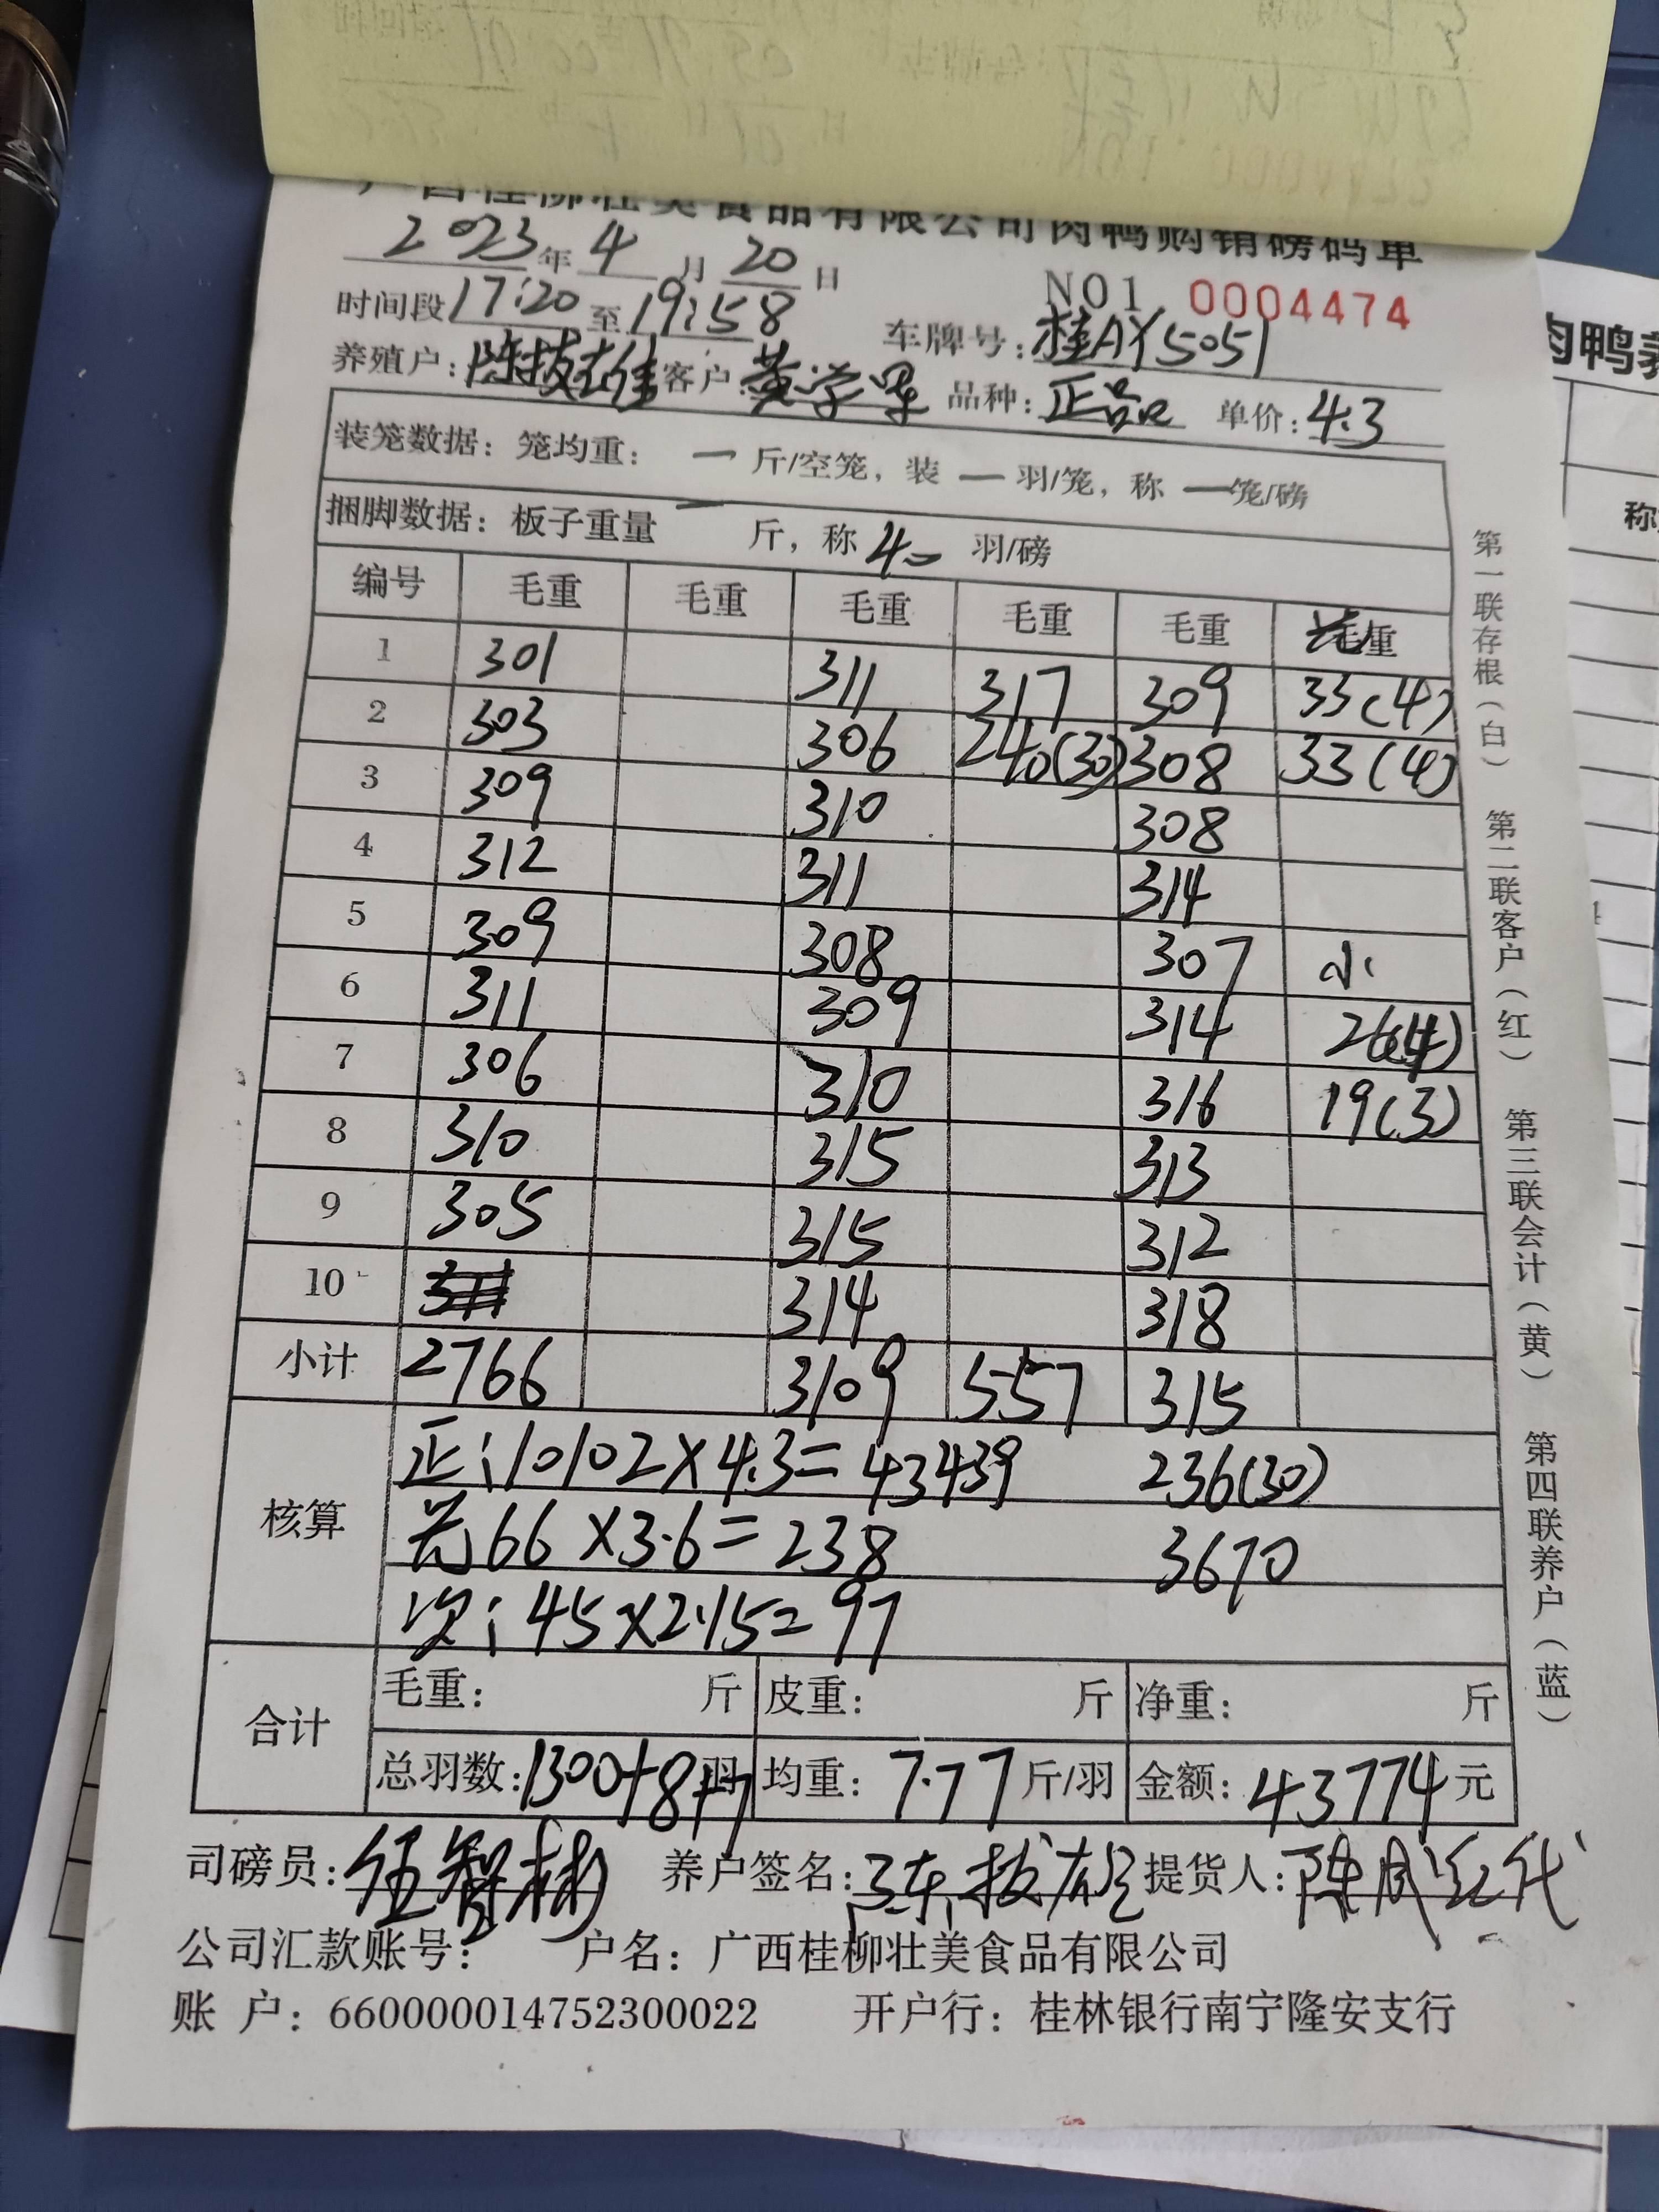 广西桂柳壮美食品有限公司肉鸭购销磅码单
2023年4月20日
NO1 0004474
时间段17:20至19:58 车牌号:桂AY5051
养殖户:陈拔雄 客户:黄学军 品种:正品 单价:4.3
装笼数据:笼均重: — 斤/空笼,装 — 羽/笼,称 — 笼/磅
捆脚数据:板子重量 — 斤,称 40 羽/磅
编号 毛重 毛重 毛重 毛重 毛重 毛重
1 301 311 317 309 33(4)
2 303 306 240(30) 308 33(4)
3 309 310 308
4 312 311 314
5 309 308 307 小
6 311 309 314 26(4)
7 306 310 316 19(3)
8 310 315 313
9 305 315 312
10 314 318
小计 2766 3109 557 315
核算
正:10102×4.3=43439 236(30)
66×3.6=238 3670
次:45×2.15=97
合计
毛重: 斤 皮重: 斤 净重: 斤
总羽数:1300+8+7羽 均重:7.77斤/羽 金额:43774元
司磅员:伍智彬 养户签名:陈拔雄 提货人:陈凤 代
公司汇款账号: 户名:广西桂柳壮美食品有限公司
账 户:660000014752300022 开户行:桂林银行南宁隆安支行
第一联存根(白) 第二联客户(红) 第三联会计(黄) 第四联养户(蓝)
肉鸭养
称